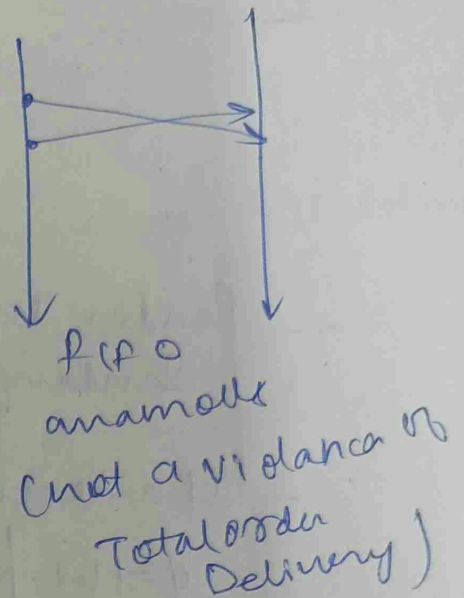 FIFO
anamolies
(not a violance of
Total order
Delivery)